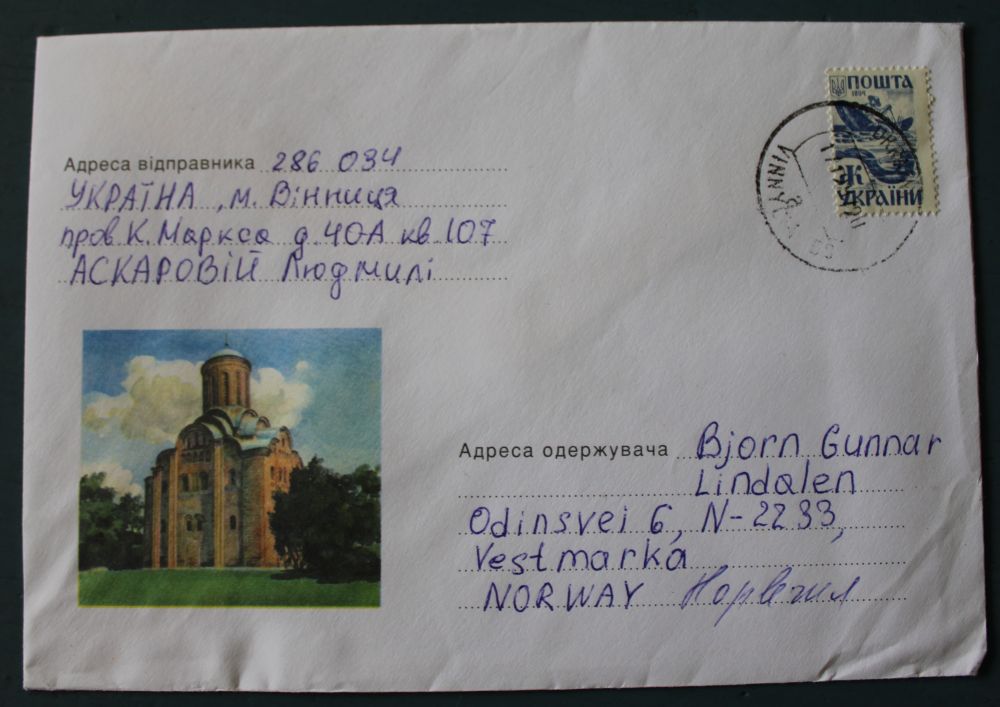 Адреса відправника 286 034
УКРАЇНА, м. Вінниця
пров К. Маркса д. 40-А кв 107
АСКАРОВІЙ Людмилі
ПОШТА
1994
Ж
УКРАЇНИ
VINNYTSIA
Адреса одержувача Bjorn Gunnar
Lindalen
Odinsvei 6, N-2233,
Vestmarka
NORWAY Норвегия